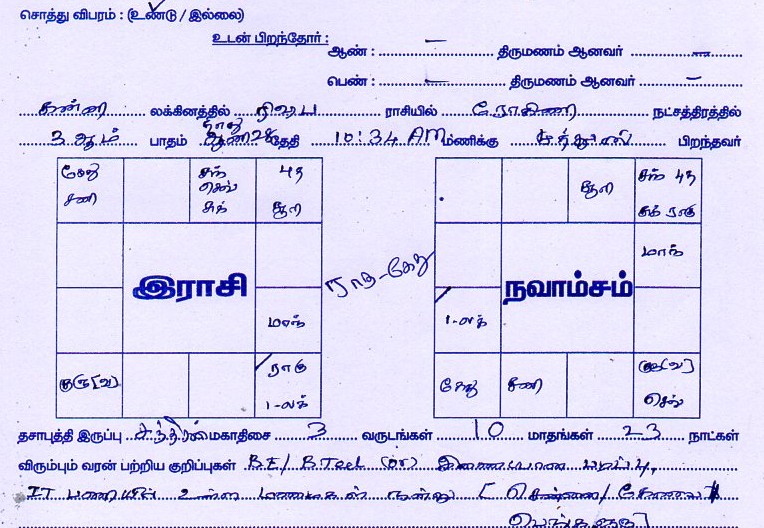 சொத்து விபரம் : (உண்டு / இல்லை)
உடன் பிறந்தோர் :
ஆண் : – திருமணம் ஆனவர் –
பெண் : – திருமணம் ஆனவர் –
கன்னி லக்கினத்தில் ரிஷப ராசியில் ரோகிணி நட்சத்திரத்தில்
3 ஆம் பாதம் ஆணி 28 தேதி 10:34 AM மணிக்கு பிறந்தவர்
கேது சந் புத சந் புத
சனி செவ் சுக் சூரி சூரி சுக் ராகு
மாந்
இராசி ராகு-கேது நவாம்சம்
மாந் லக்
குரு(வ) ராகு கேது சனி குரு(வ)
லக் செவ்
தசாபுத்தி இருப்பு சந்திரன் மகாதிசை 3 வருடங்கள் 10 மாதங்கள் 23 நாட்கள்
விரும்பும் வரன் பற்றிய குறிப்புகள் BE/ B.Tech (or) இணையான படிப்பு,
IT பணியில் உள்ள [சென்னை/ கோவை/
பெங்களூரு]